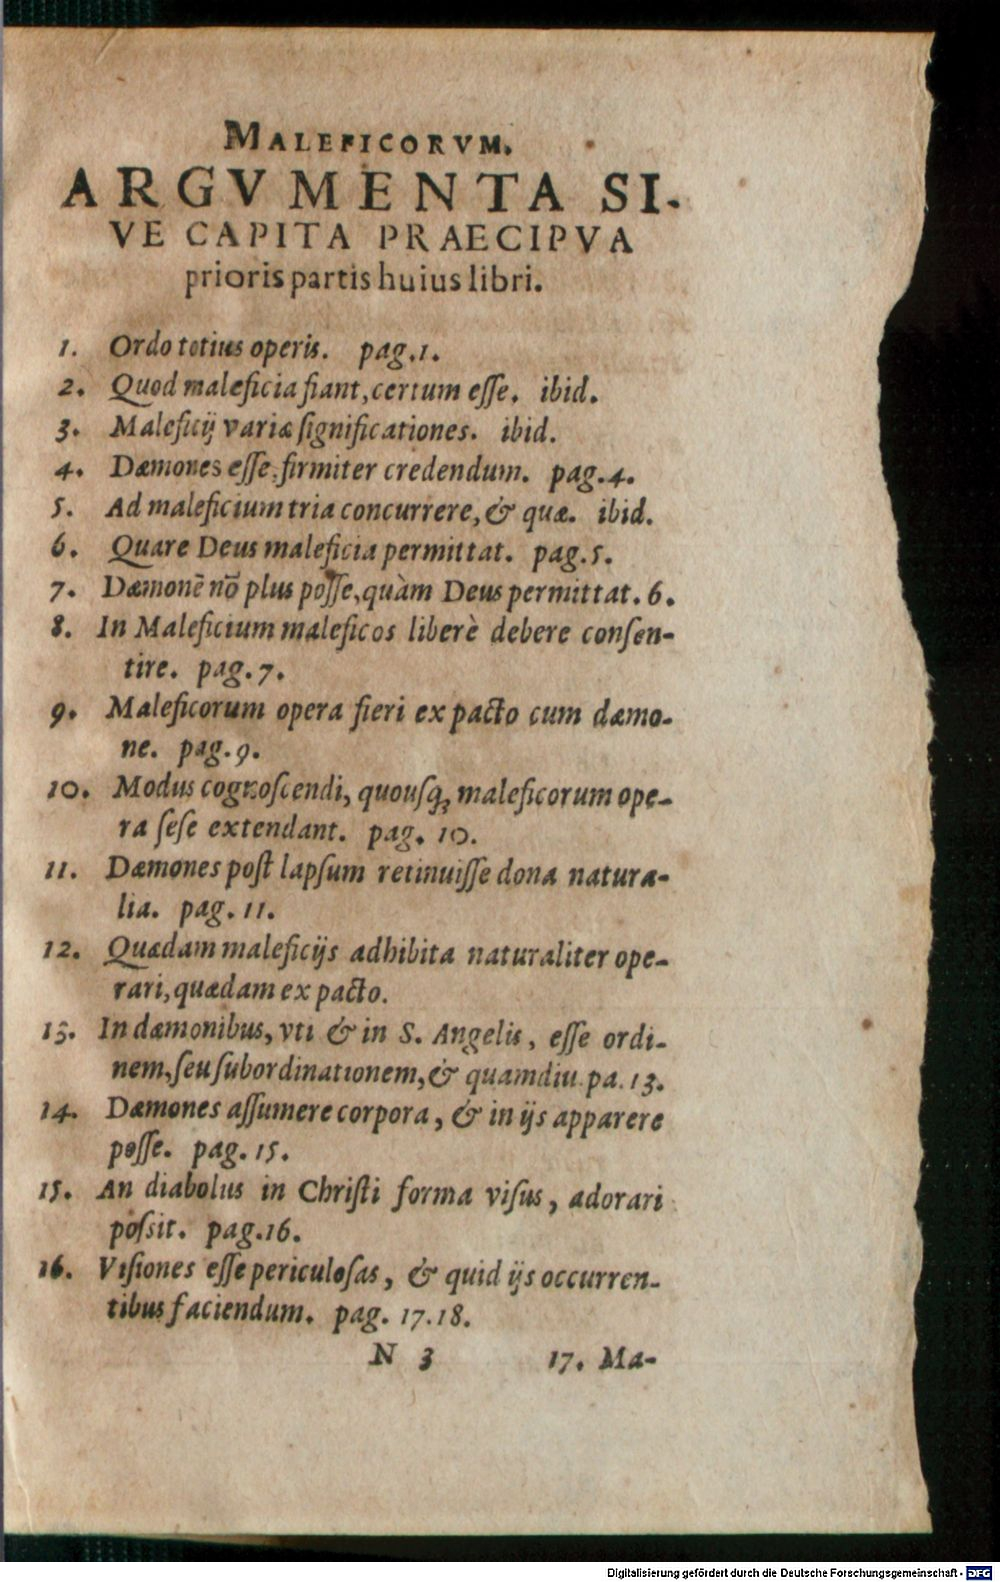 MALEFICORVM.
ARGVMENTA SI-
VE CAPITA PRAECIPVA
prioris partis huius libri.
1. Ordo totius operis. pag.1.
2. Quod maleficia fiant, certum eſſe. ibid.
3. Maleficij variæ ſignificationes. ibid.
4. Dæmones eſſe firmiter credendum. pag.4.
5. Ad maleficium tria concurrere, & quæ. ibid.
6. Quare Deus maleficia permittat. pag.5.
7. Dæmonē nō plus poſſe, quàm Deus permittat. 6.
8. In Maleficium maleficos liberè debere conſen-
tire. pag.7.
9. Maleficorum opera fieri ex pacto cum dæmo-
ne. pag.9.
10. Modus cognoſcendi, quouſq; maleficorum ope-
ra ſeſe extendant. pag. 10.
11. Dæmones poſt lapſum retinuiſſe dona natura-
lia. pag. 11.
12. Quædam maleficijs adhibita naturaliter ope-
rari, quædam ex pacto.
13. In dæmonibus, vti & in S. Angelis, eſſe ordi-
nem, ſeu ſubordinationem, & quamdiu pa. 13.
14. Dæmones aſſumere corpora, & in ijs apparere
poſſe. pag. 15.
15. An diabolus in Chriſti forma viſus, adorari
poſsit. pag.16.
16. Viſiones eſſe periculoſas, & quid ijs occurren-
tibus faciendum. pag. 17.18.
N 3 17. Ma-
Digitalisierung gefördert durch die Deutsche Forschungsgemeinschaft - DFG